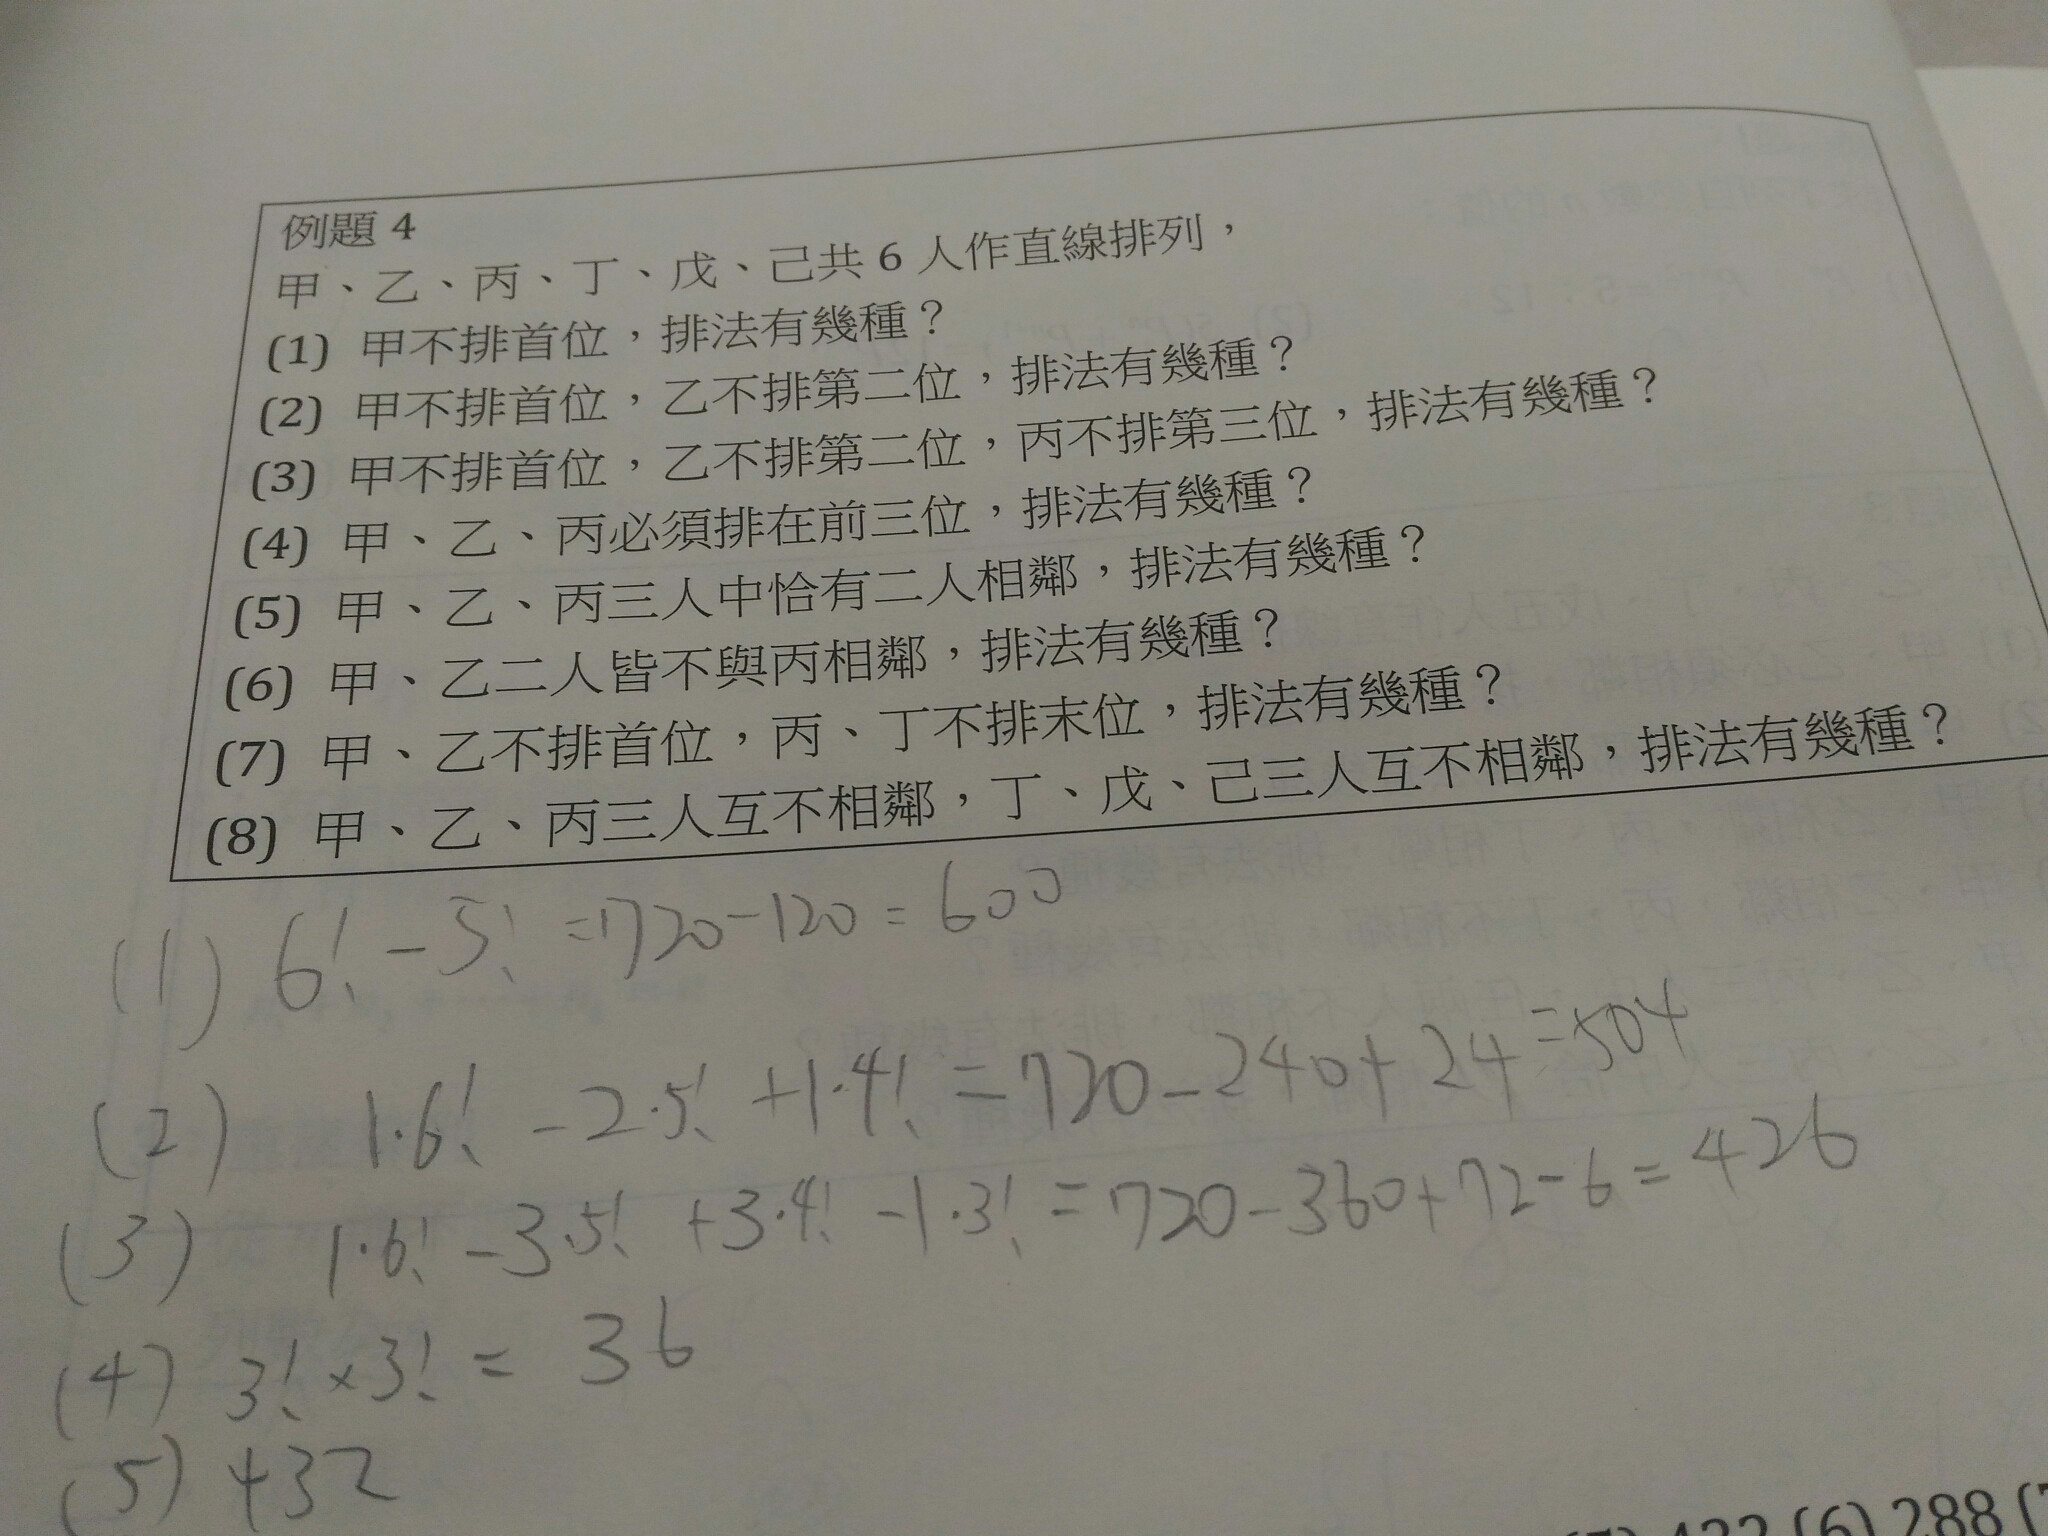 例題 4
甲、乙、丙、丁、戊、己共 6 人作直線排列，
(1) 甲不排首位，排法有幾種？
(2) 甲不排首位，乙不排第二位，排法有幾種？
(3) 甲不排首位，乙不排第二位，丙不排第三位，排法有幾種？
(4) 甲、乙、丙必須排在前三位，排法有幾種？
(5) 甲、乙、丙三人中恰有二人相鄰，排法有幾種？
(6) 甲、乙二人皆不與丙相鄰，排法有幾種？
(7) 甲、乙不排首位，丙、丁不排末位，排法有幾種？
(8) 甲、乙、丙三人互不相鄰，丁、戊、己三人互不相鄰，排法有幾種？
(1) 6! - 5! = 720 - 120 = 600
(2) 1·6! - 2·5! + 1·4! = 720 - 240 + 24 = 504
(3) 1·6! - 3·5! + 3·4! - 1·3! = 720 - 360 + 72 - 6 = 426
(4) 3! × 3! = 36
(5) 432
432 (6) 288